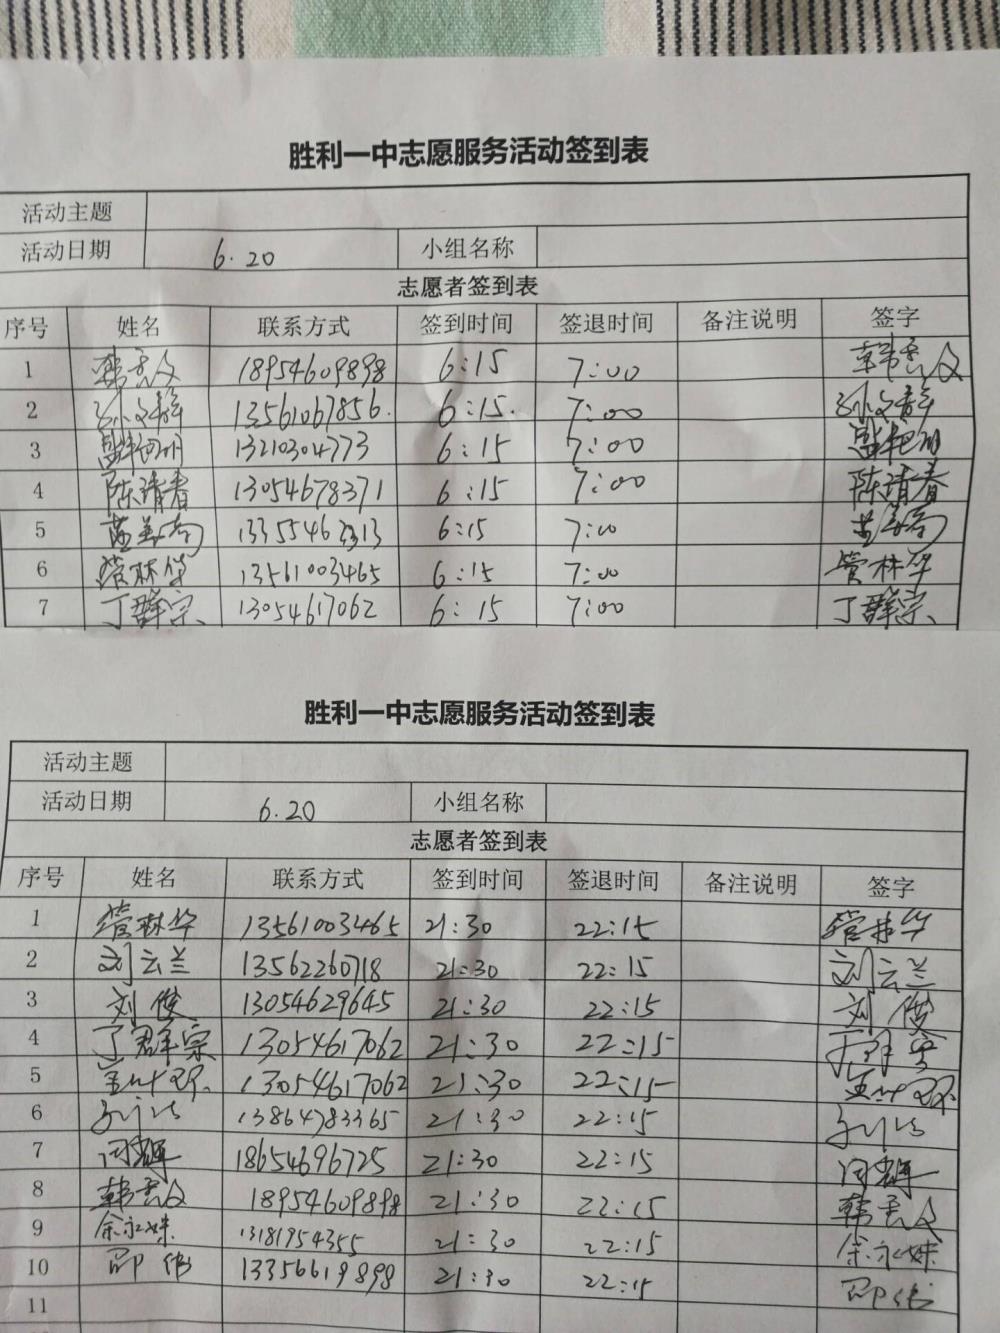 胜利一中志愿服务活动签到表
活动主题
活动日期 6.20 小组名称
志愿者签到表
序号 姓名 联系方式 签到时间 签退时间 备注说明 签字
1 韩 18954609898 6:15 7:00 韩
2 孙文静 13561067856. 6:15. 7:00 孙文静
3 13210304773 6:15 7:00
4 陈清春 13054678371 6:15 7:00 陈清春
5 13355463313 6:15 7:00
6 管林华 13561003465 6:15 7:00 管林华
7 丁群宗 13054617062 6:15 7:00 丁群宗
胜利一中志愿服务活动签到表
活动主题
活动日期 6.20 小组名称
志愿者签到表
序号 姓名 联系方式 签到时间 签退时间 备注说明 签字
1 管林华 13561003465 21:30 22:15 管林华
2 刘云兰 13562260718 21:30 22:15 刘云兰
3 刘俊 13054629645 21:30 22:15 刘俊
4 丁群宗 13054617062 21:30 22:15 丁群宗
5 13054617062 21:30 22:15
6 13864783365 21:30 22:15
7 闫辉 18654696725 21:30 22:15 闫辉
8 韩 18954609898 21:30 22:15 韩
9 余永妹 13181954355 21:30 22:15 余永妹
10 邵伟 13356619898 21:30 22:15 邵伟
11